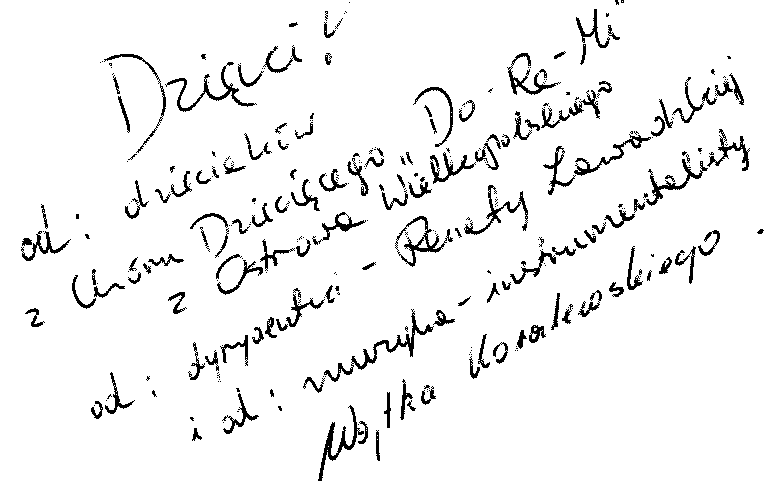 Dzięci!
od: dzieciaków
z Chóru Dziecięcego „Do-Re-Mi"
z Ostrowa Wielkopolskiego
od: dyrygentki - Renaty Zawadzkiej
i od: muzyka-instrumentalisty
Wojtka Kowalewskiego.